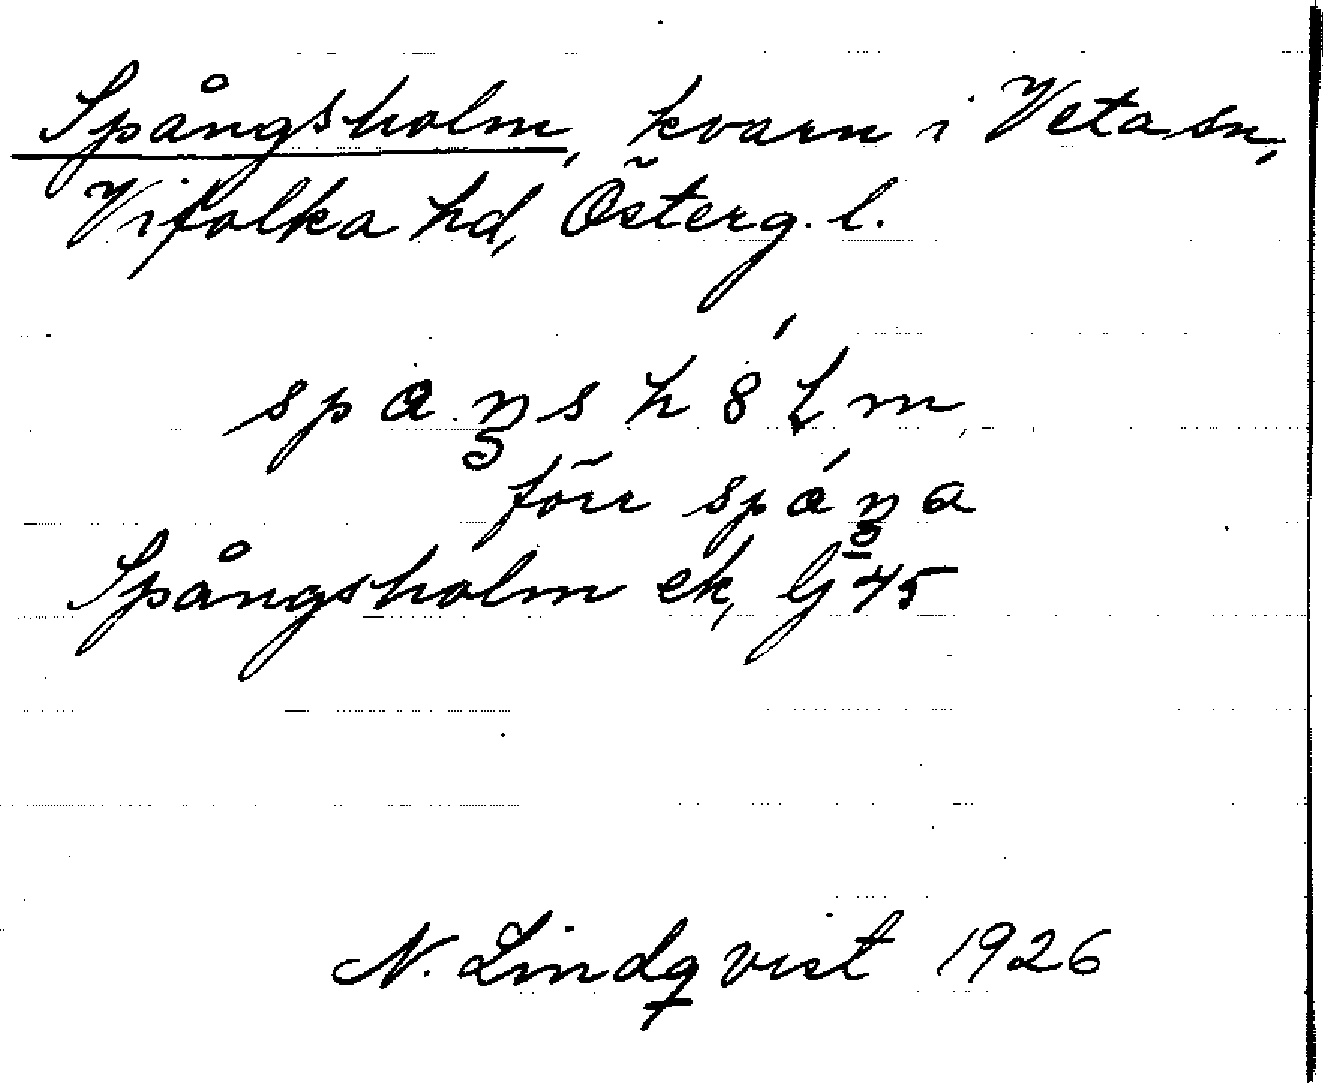 Spångsholm, kvarn i Veta sn,
Vifolka hd, Österg. l.
spaŋshólm
förr spáŋa
Spångsholm ek, Gj 45
N. Lindqvist 1926